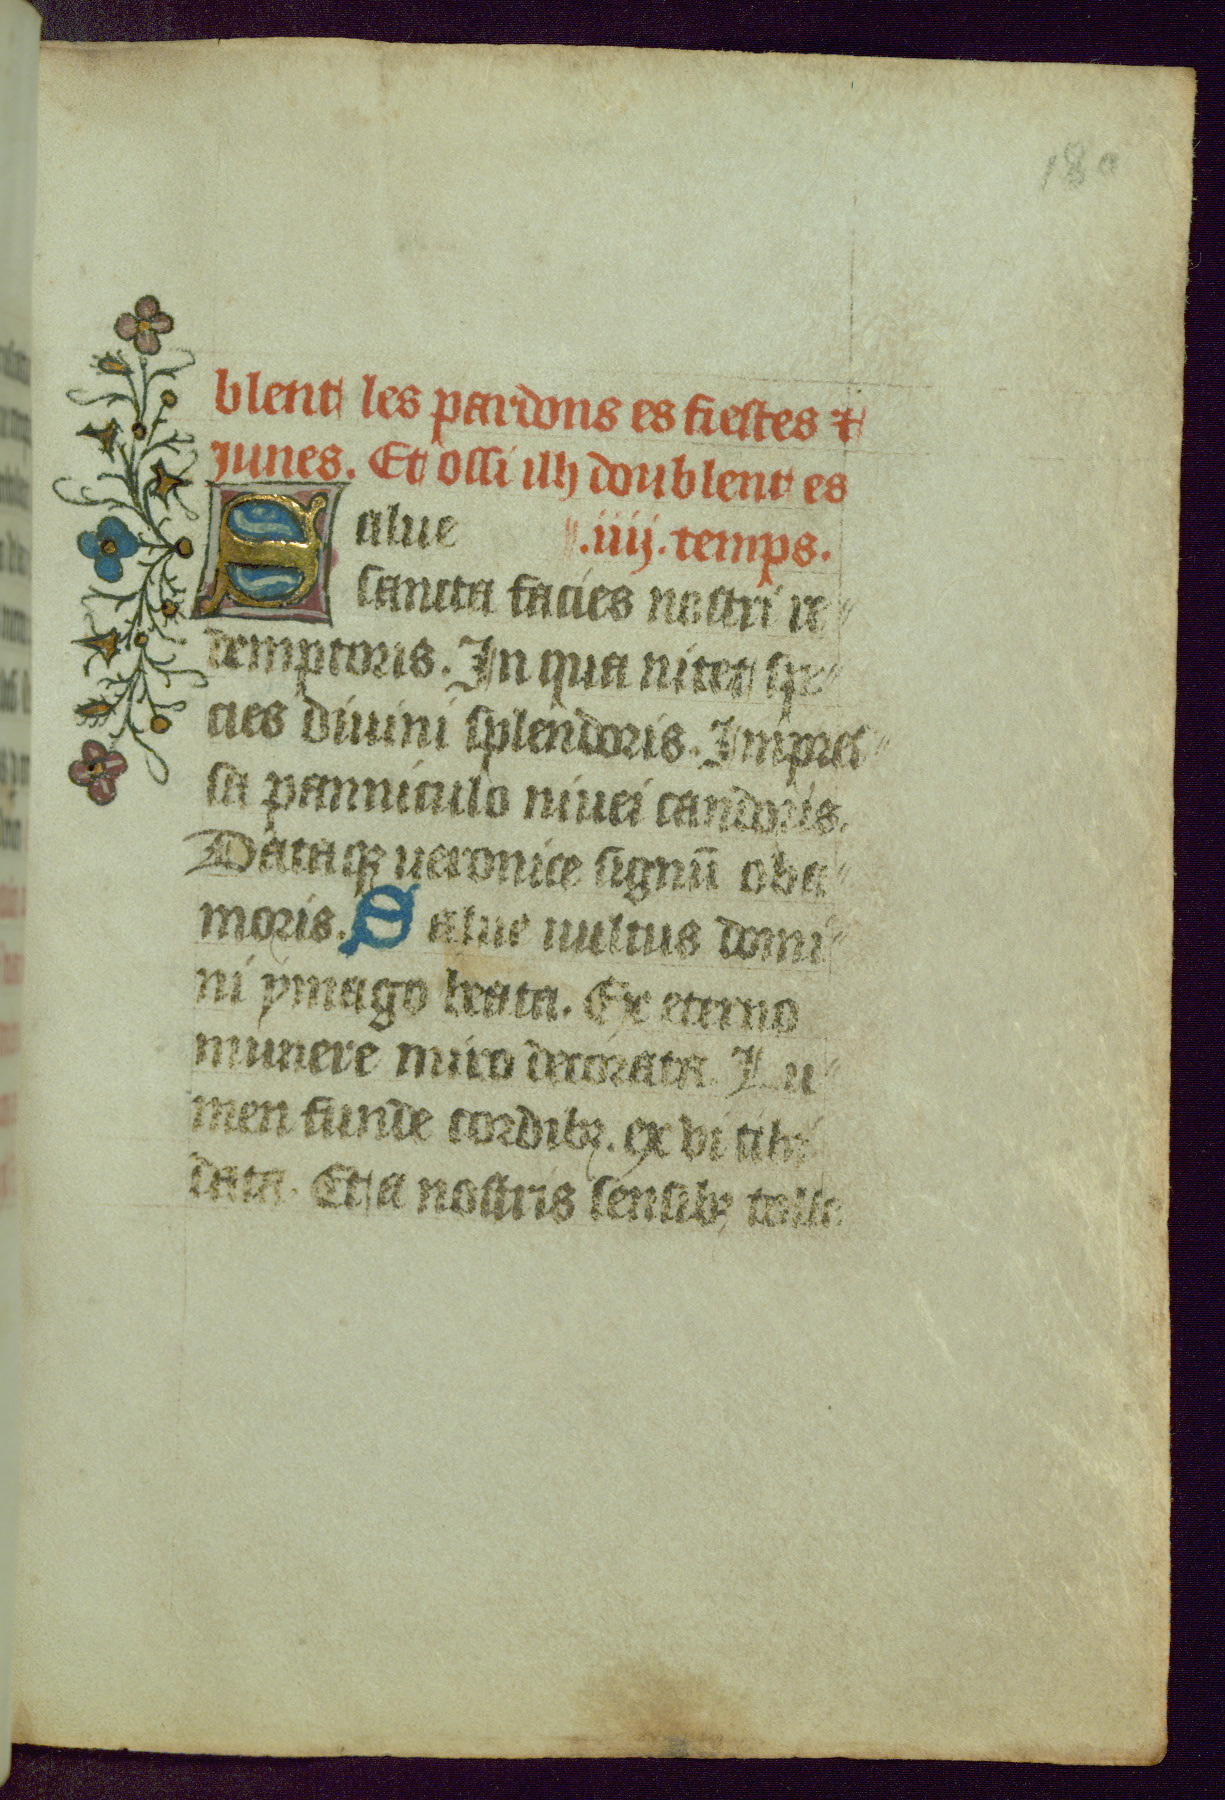 180
blent les pardons es fiestes &
junes. Et ossi ilh doublent es
Salue .iiij. temps.
sancta facies nostri re
demptoris. In qua nitet spe
cies diuini splendoris. Impres
sa panniculo niuei candoris.
Dataqz ueronice signū oba
moris. Salue uultus domi
ni ymago beata. Ex eterno
munere miro decorata. Lu
men funde cordibz. ex vi tibi
data. Et a nostris sensibz tolle